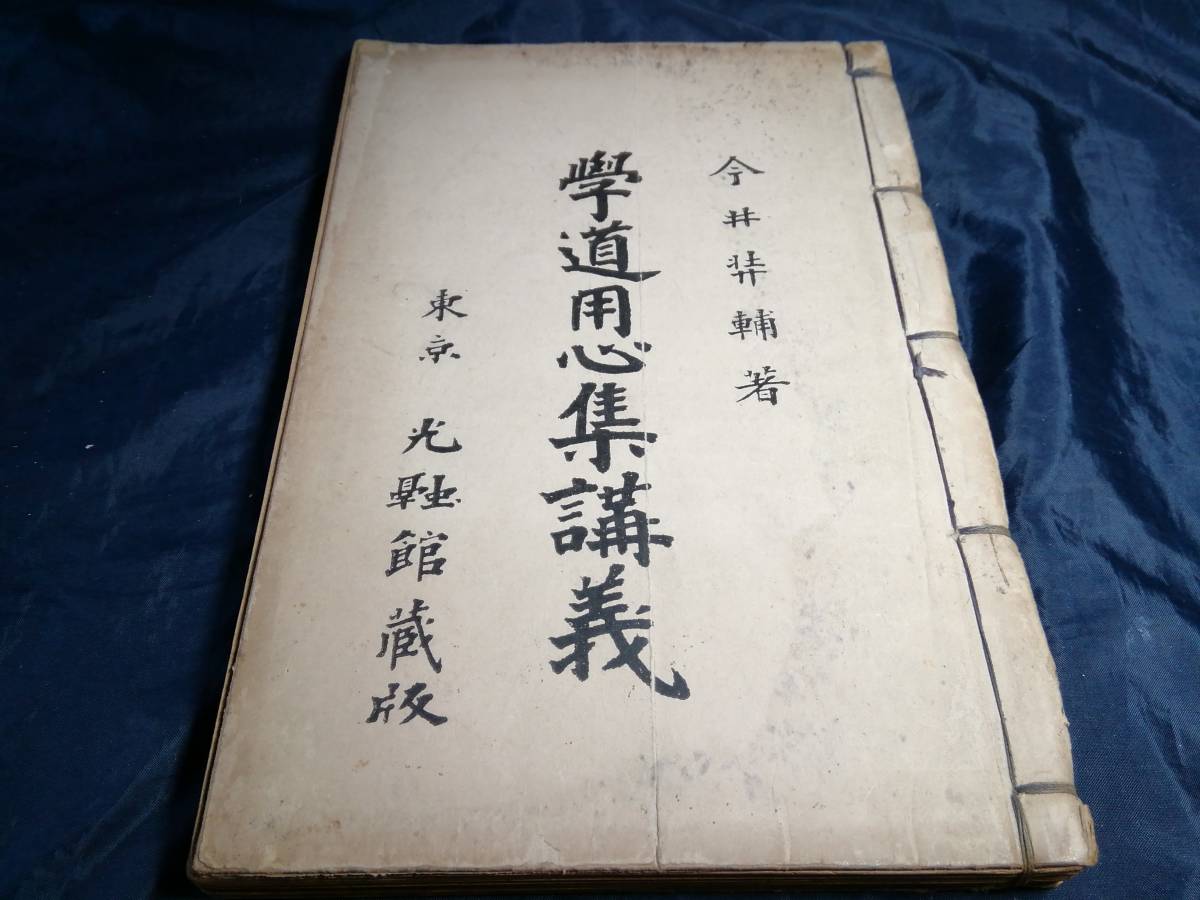 今井弉輔著
學道用心集講義
東京 光融館蔵版